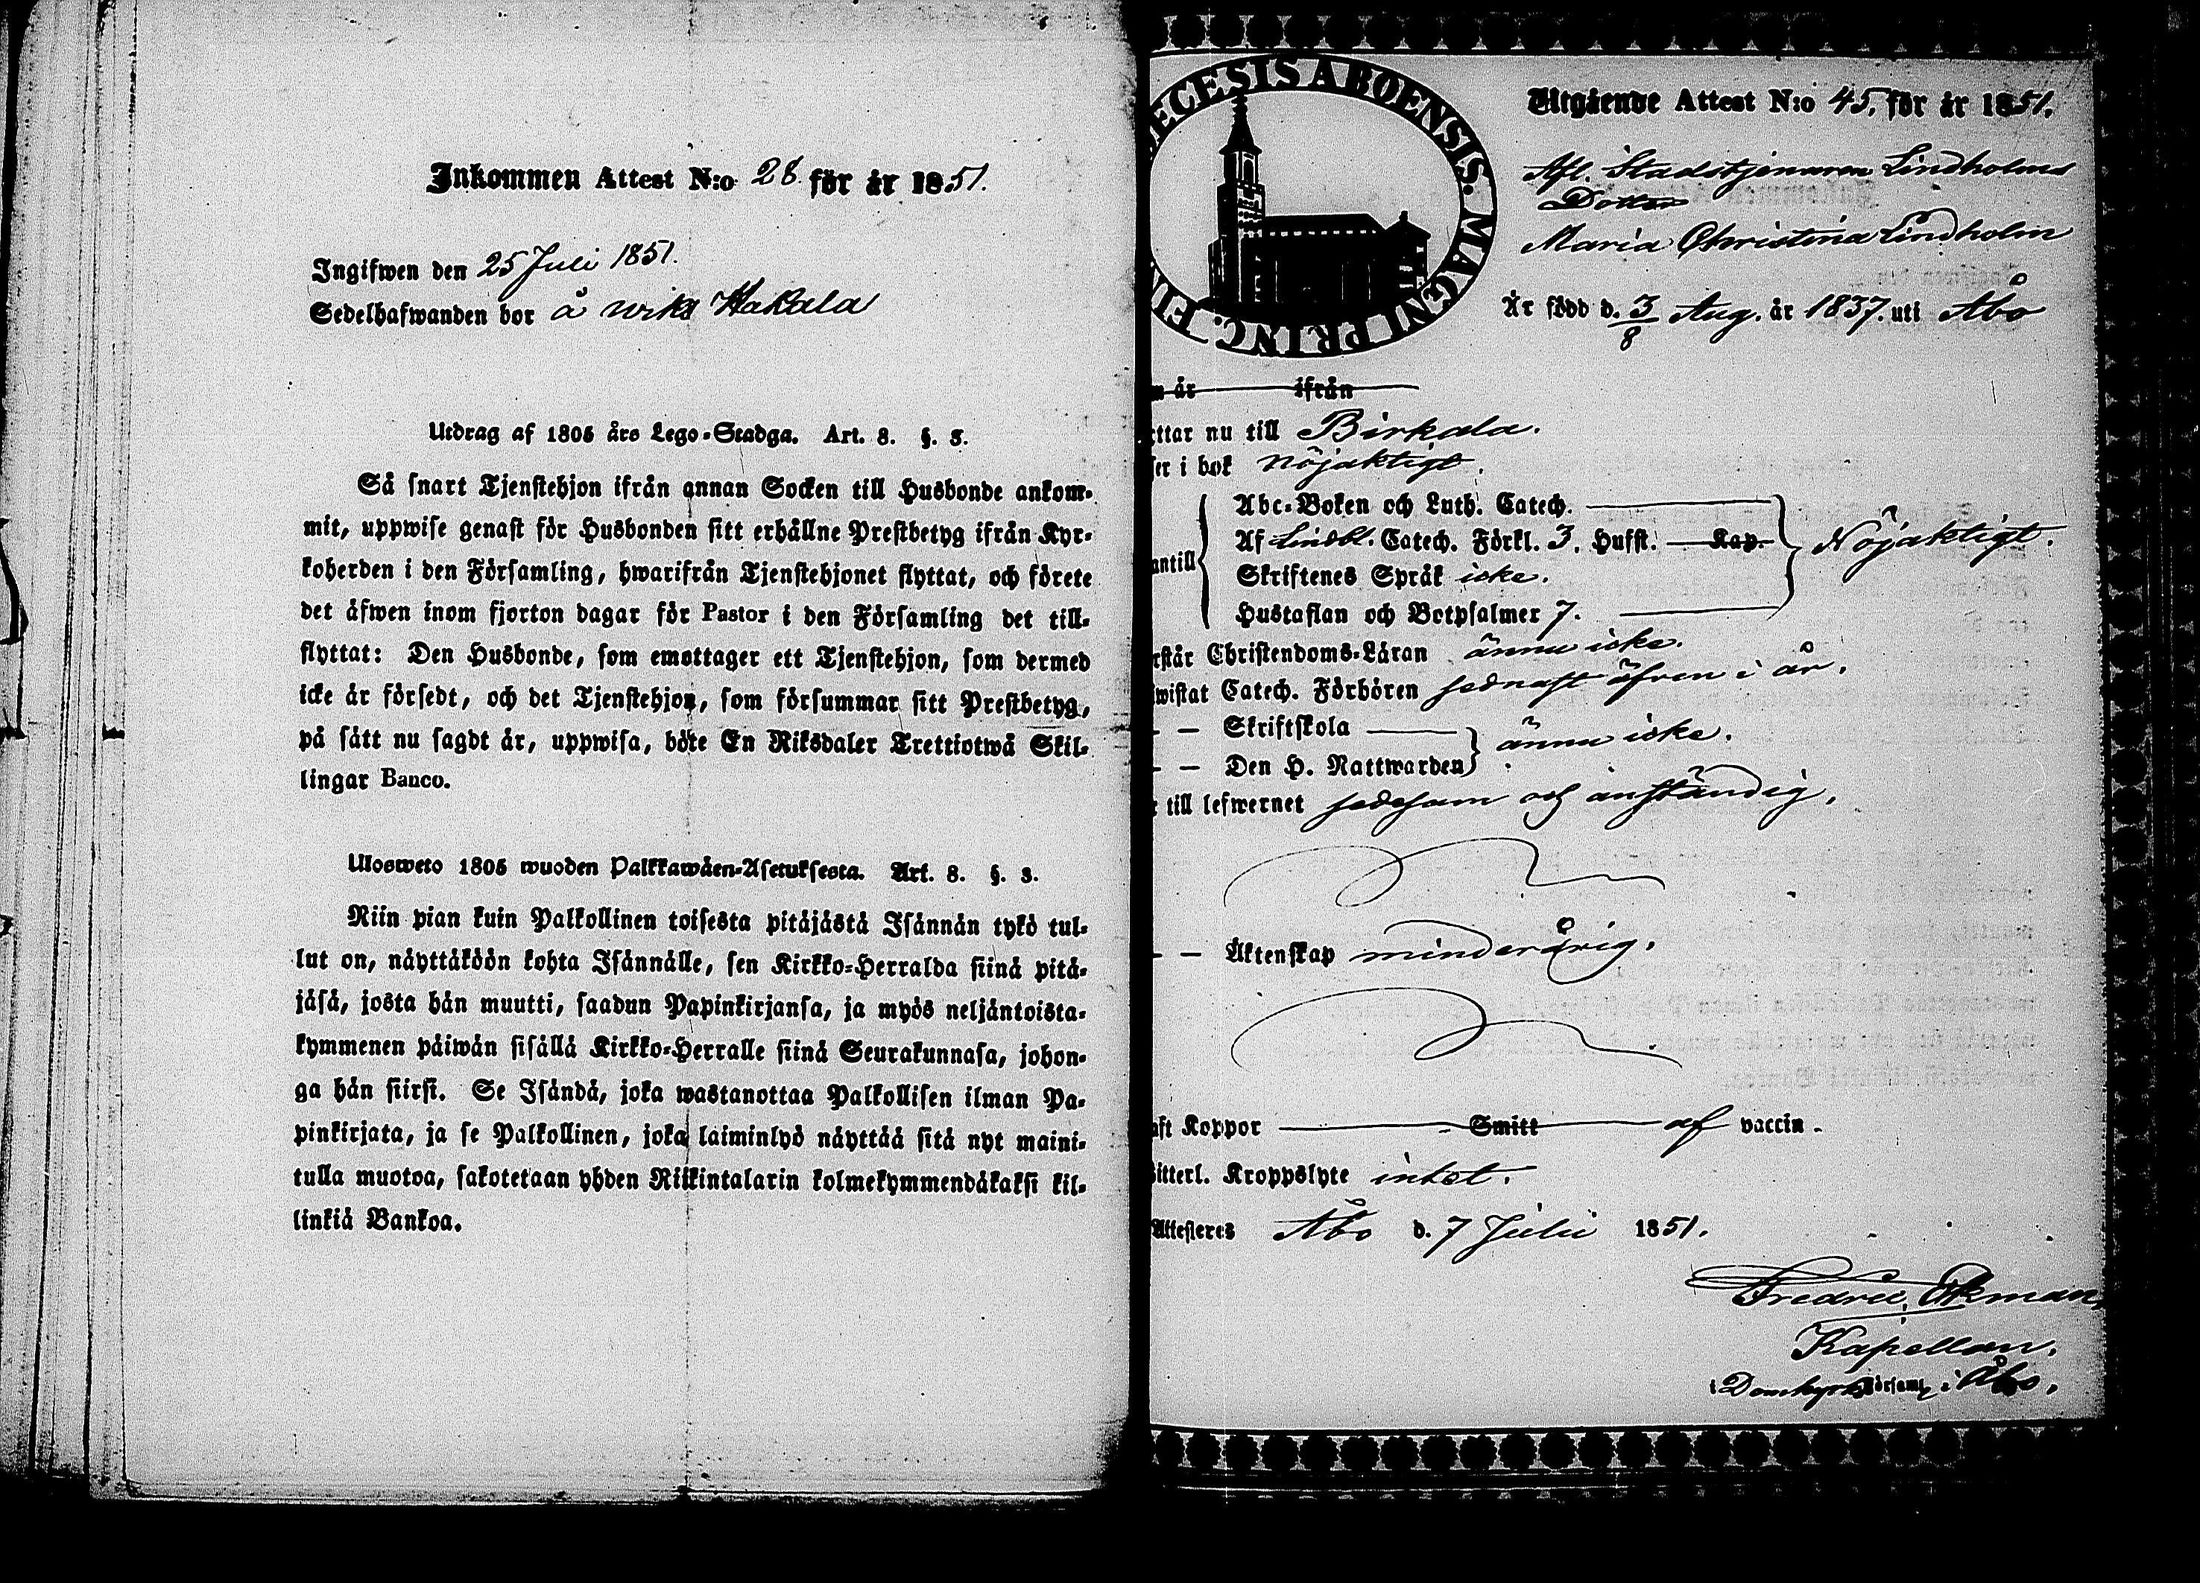 Inkommen Attest N:o 28. för år 1851.
Ingifwen den 25 Juli 1851.
Sedelhafwanden bor å wiks Hakala
Utdrag af 1805 års Lego-Stadga. Art. 8. §. 3.
Så snart Tjenstehjon ifrån annan Socken till Husbonde ankom-
mit, uppwise genast för Husbonden sitt erhållne Prestbetyg ifrån Kyr-
koherden i den Församling, hwarifrån Tjenstehjonet flyttat, och förete
det äfwen inom fjorton dagar för Pastor i den Församling det till-
flyttat: Den Husbonde, som emottager ett Tjenstehjon, som dermed
icke är försedt, och det Tjenstehjon, som försummar sitt Prestbetyg,
på sätt nu sagdt är, uppwisa, böte En Riksdaler Trettiotwå Skil-
lingar Banco.
Ulosweto 1805 wuoden Palkkawäen-Asetuksesta. Art. 8. §. 3.
Niin pian kuin Palkollinen toisesta pitäjästä Isännän tykö tul-
lut on, näyttäköön kohta Isännälle, sen Kirkko-Herralda siinä pitä-
jäsä, josta hän muutti, saadun Papinkirjansa, ja myös neljäntoista-
kymmenen päiwän sisällä Kirkko-Herralle siinä Seurakunnasa, johon-
ga hän siirsi. Se Isändä, joka wastanottaa Palkollisen ilman Pa-
pinkirjata, ja se Palkollinen, joka laiminlyö näyttää sitä nyt maini-
tulla muotoa, sakotetaan yhden Riikintalarin kolmekymmendäkaksi kil-
linkiä Bankoa.
ECESIS ABOENSIS. MAGNI PRINC. FIN
Utgående Attest N:o 45. för år 1851.
Afl. Stadstjenaren Lindholms
Dotter
Maria Christina Lindholm
Är född d. 3/8 Aug. år 1837. uti Åbo
n år ifrån
ttar nu till Birkala.
ser i bok nöjaktigt.
Abc-Boken och Luth. Catech.
antill Af Lindbl. Catech. Förkl. 3. Hufst. Kap. Nöjaktigt.
Skriftenes Språk icke.
Hustaflan och Botpsalmer 7.
rstår Christendoms-Läran ännu icke.
wistat Catech. Förhören sednast äfven i år.
— — Skriftskola
— — Den H. Nattwarden ännu icke.
r till lefwernet sedesam och anständig.
— — Äktenskap minderårig.
aft Koppor Smitt af vaccin.
itterl. Kroppslyte intet.
Attesteres Åbo d. 7 Julii 1851.
Fredric Ekman,
Kapellan.
i Domkyrko församl. i Åbo.